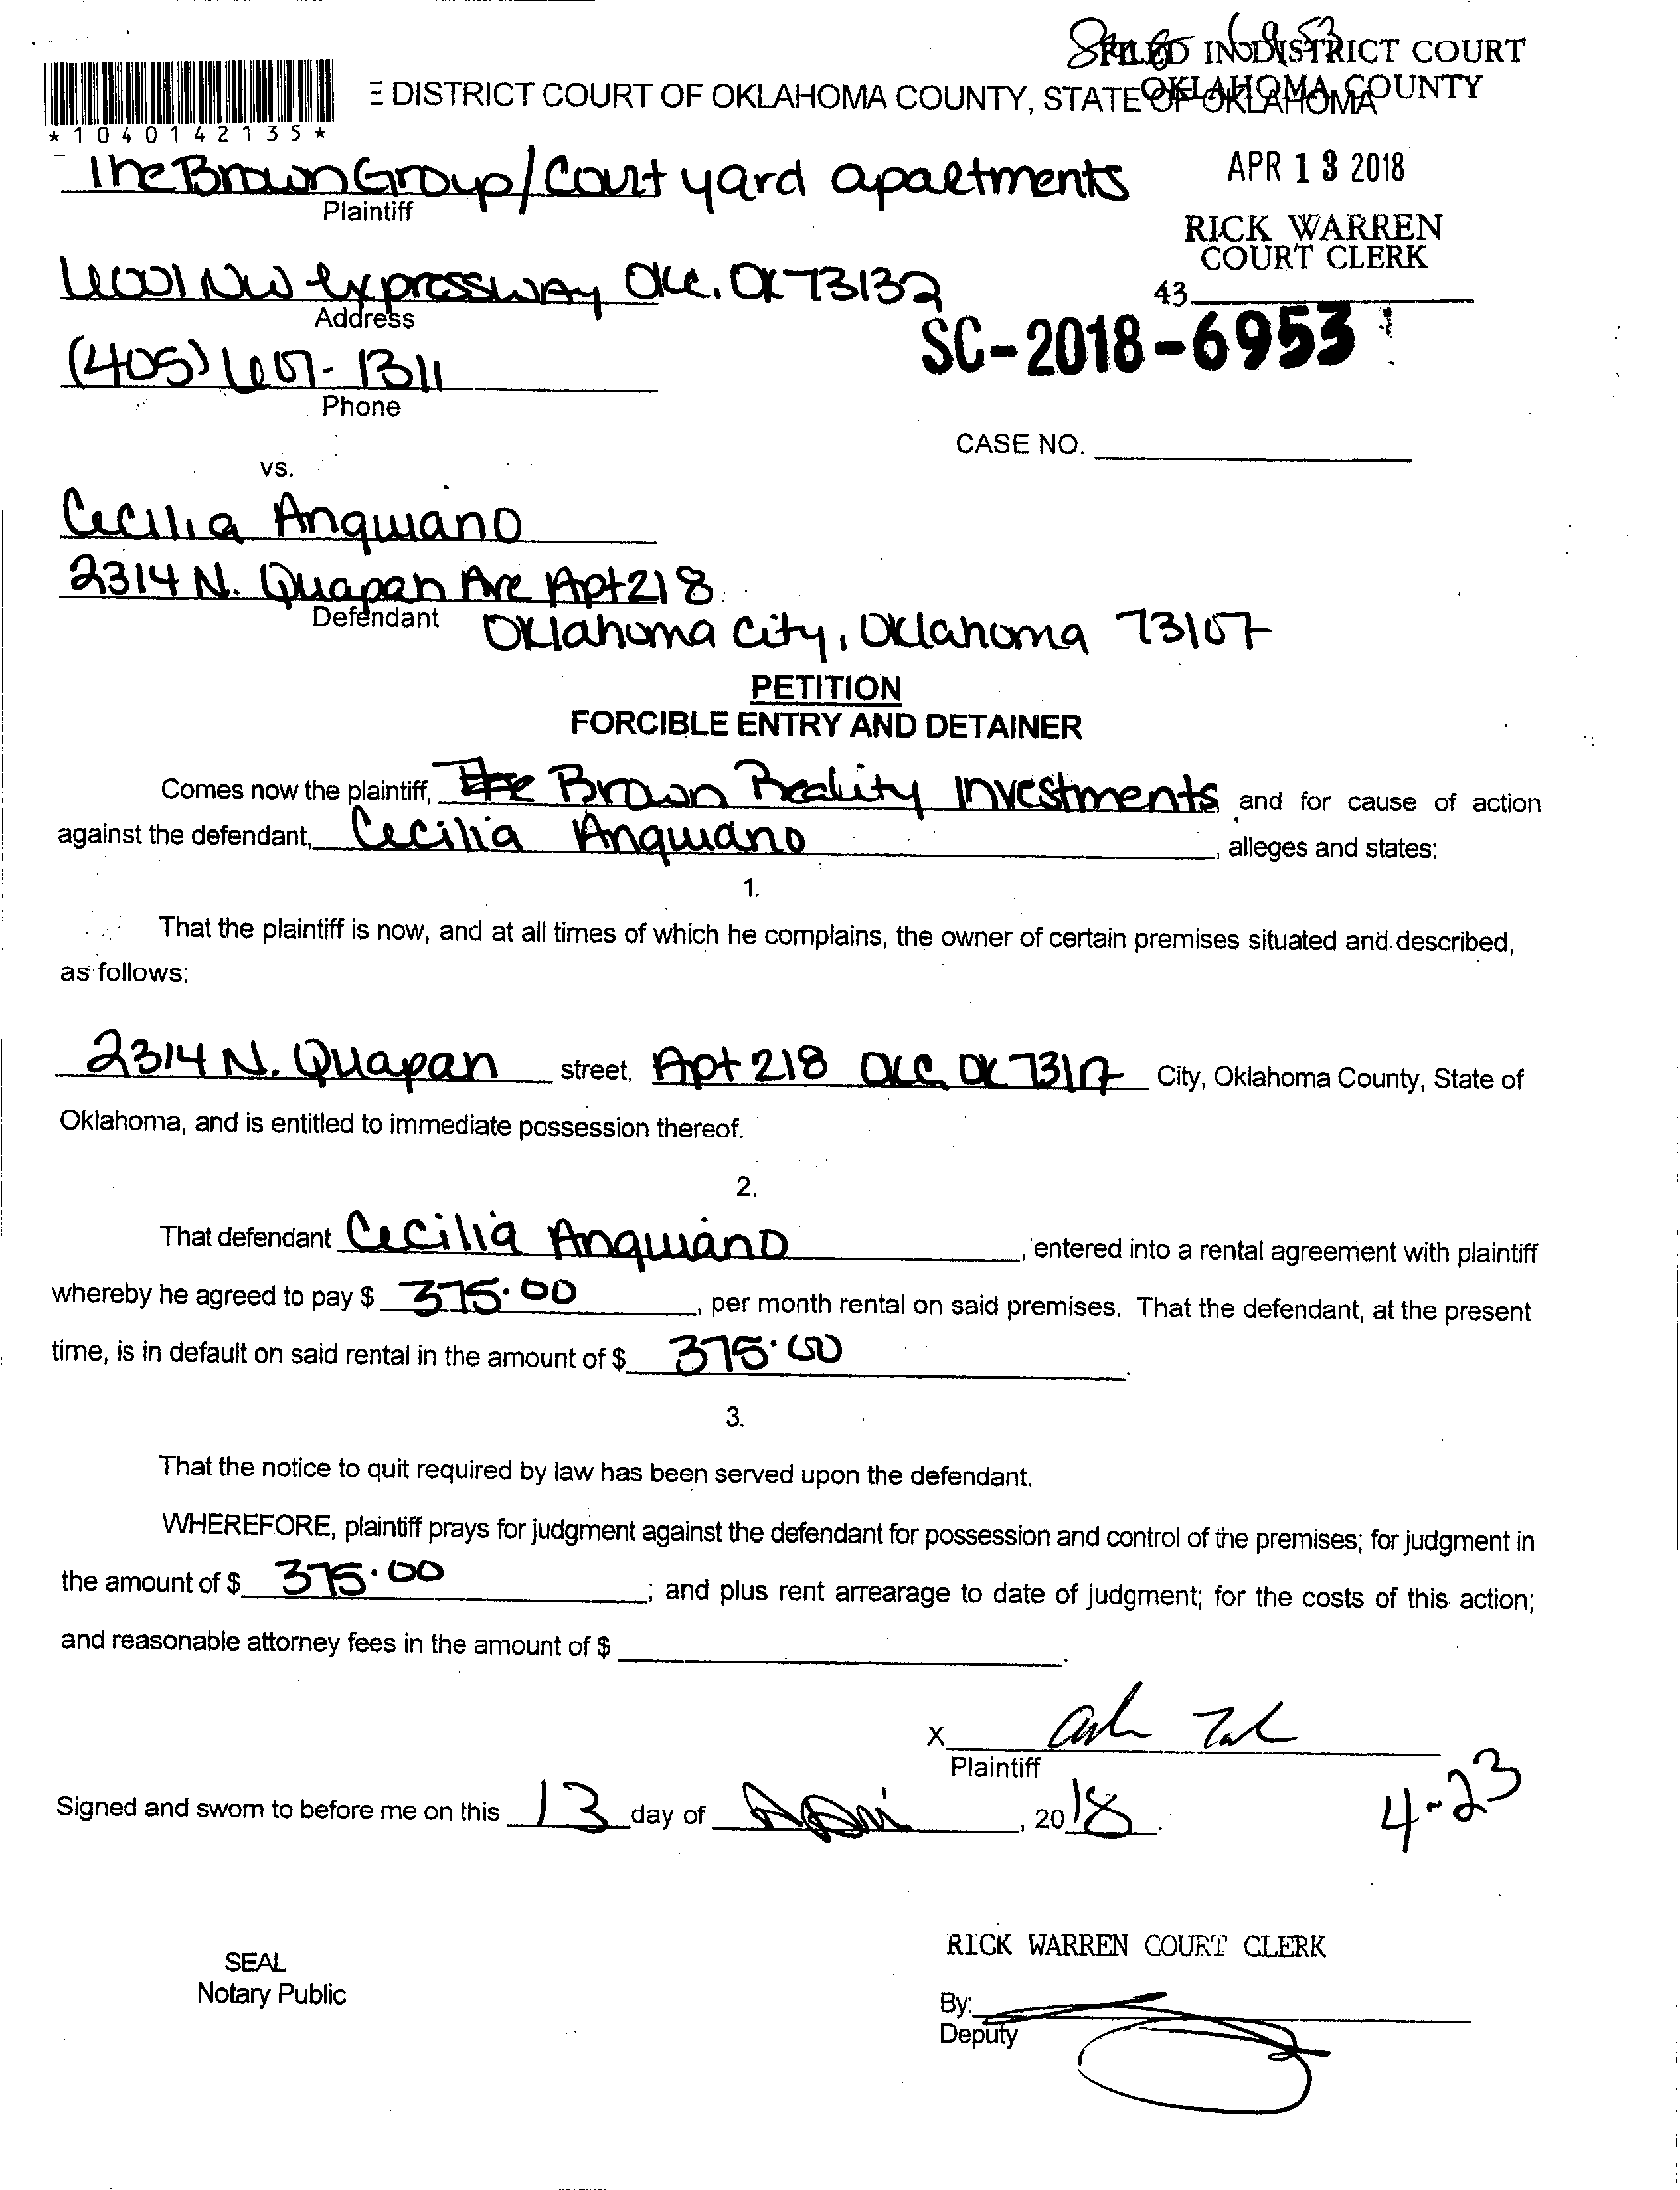 FILED IN DISTRICT COURT
OKLAHOMA COUNTY
E DISTRICT COURT OF OKLAHOMA COUNTY, STATE OF OKLAHOMA
*1040142135*
The Brown Group/Court yard apartments
Plaintiff
APR 13 2018
RICK WARREN
COURT CLERK
43
NW expressway OKC. OK 73132
Address
SC-2018-6953
(405) 607-1311
Phone
CASE NO.
vs.
Cecilia Anquiano
2314 N. Quapan Ave Apt 218
Defendant
Oklahoma City, Oklahoma 73107
PETITION
FORCIBLE ENTRY AND DETAINER
Comes now the plaintiff, The Brown Reality Investments and for cause of action
against the defendant, Cecilia Anquiano, alleges and states:
1.
That the plaintiff is now, and at all times of which he complains, the owner of certain premises situated and described,
as follows:
2314 N. Quapan street, Apt 218 OKC OK City, Oklahoma County, State of
Oklahoma, and is entitled to immediate possession thereof.
2.
That defendant Cecilia Anquiano, entered into a rental agreement with plaintiff
whereby he agreed to pay $ 375.00, per month rental on said premises. That the defendant, at the present
time, is in default on said rental in the amount of $ 375.00.
3.
That the notice to quit required by law has been served upon the defendant.
WHEREFORE, plaintiff prays for judgment against the defendant for possession and control of the premises; for judgment in
the amount of $ 375.00; and plus rent arrearage to date of judgment; for the costs of this action;
and reasonable attorney fees in the amount of $.
X
Plaintiff
4-23
Signed and sworn to before me on this 13 day of April, 2018.
RICK WARREN COURT CLERK
SEAL
Notary Public
By:
Deputy